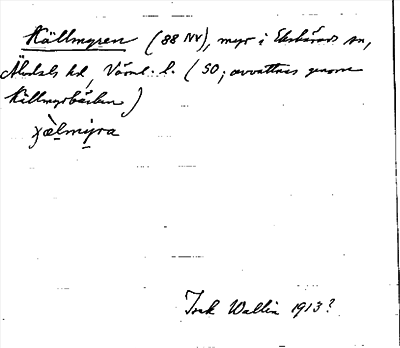 Källmyren (88 NV), myr i Ekshärads sn,
Älvdals hd, Värml. l. (SO; avvattnas genom
Källmyrbäcken)
χæ̀lmyra
Isak Wallin 1913?